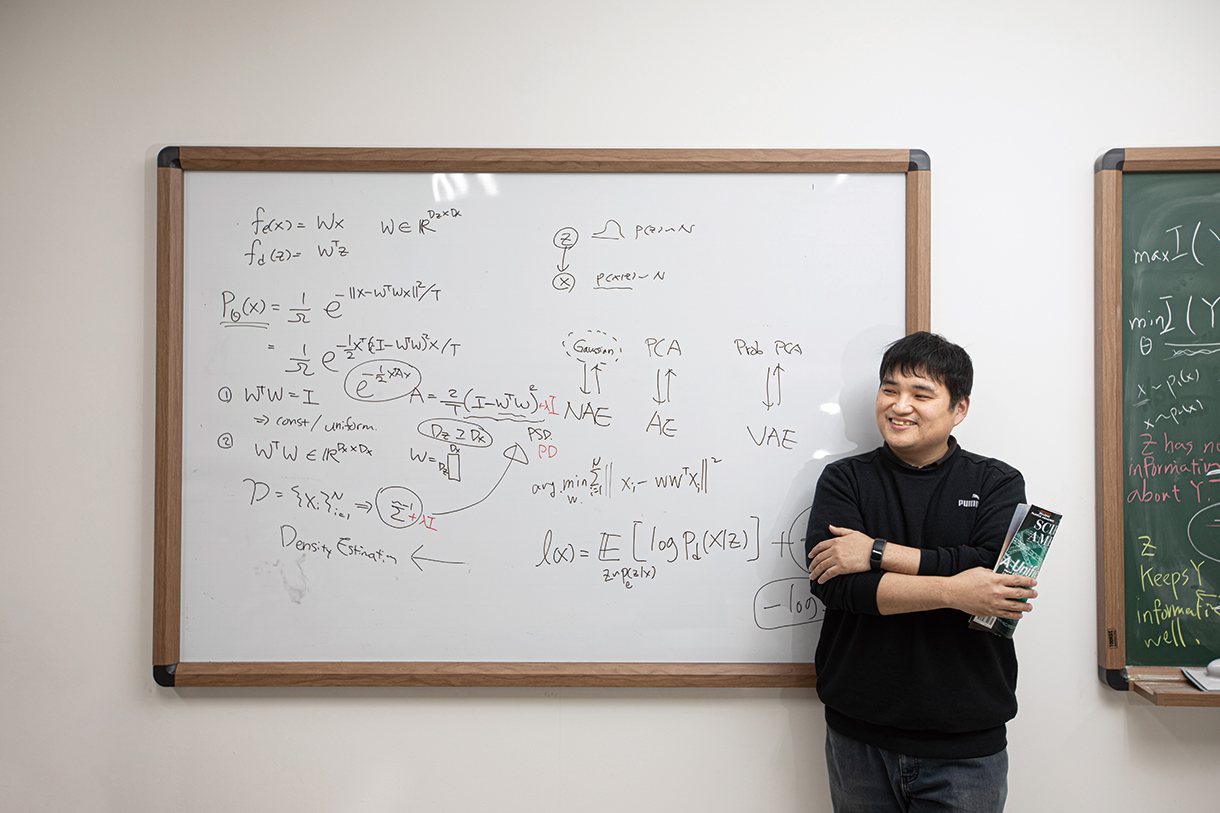 fe(x) = Wx   W ∈ ℝ^{Dz×Dx}
fd(z) = Wᵀz
Pθ(x) = 1/Ω e^{-||x-WᵀWx||²/T}
= 1/Ω e^{-½xᵀ(I-WᵀW)²x/T}
e^{-½xAx}
① WᵀW = I
⇒ const/uniform.
A = 2/T (I-WᵀW)² +λI
Dz ≥ Dx
PSD.
PD
② WᵀW ∈ ℝ^{Dx×Dx}
W =
Dx
Dz
D = {xi}ᴺᵢ₌₁ ⇒ Σ̂⁻¹ +λI
Density Estimation ←
z   p(z)~N
x   p(x|z)~N
Gaussian   PCA   Prob PCA
NAE   AE   VAE
arg min_W. Σᴺᵢ₌₁ || xi - WWᵀxi ||²
l(x) = 𝔼_{z~pe(z|x)} [log Pd(x|z)] +
- log
PUMA
SCI
AM
A Unifi
max I(Y
min_θ I(Y
x ~ p₁(x)
Z has no
information
about Y.
Z
Keeps Y
informati
well.